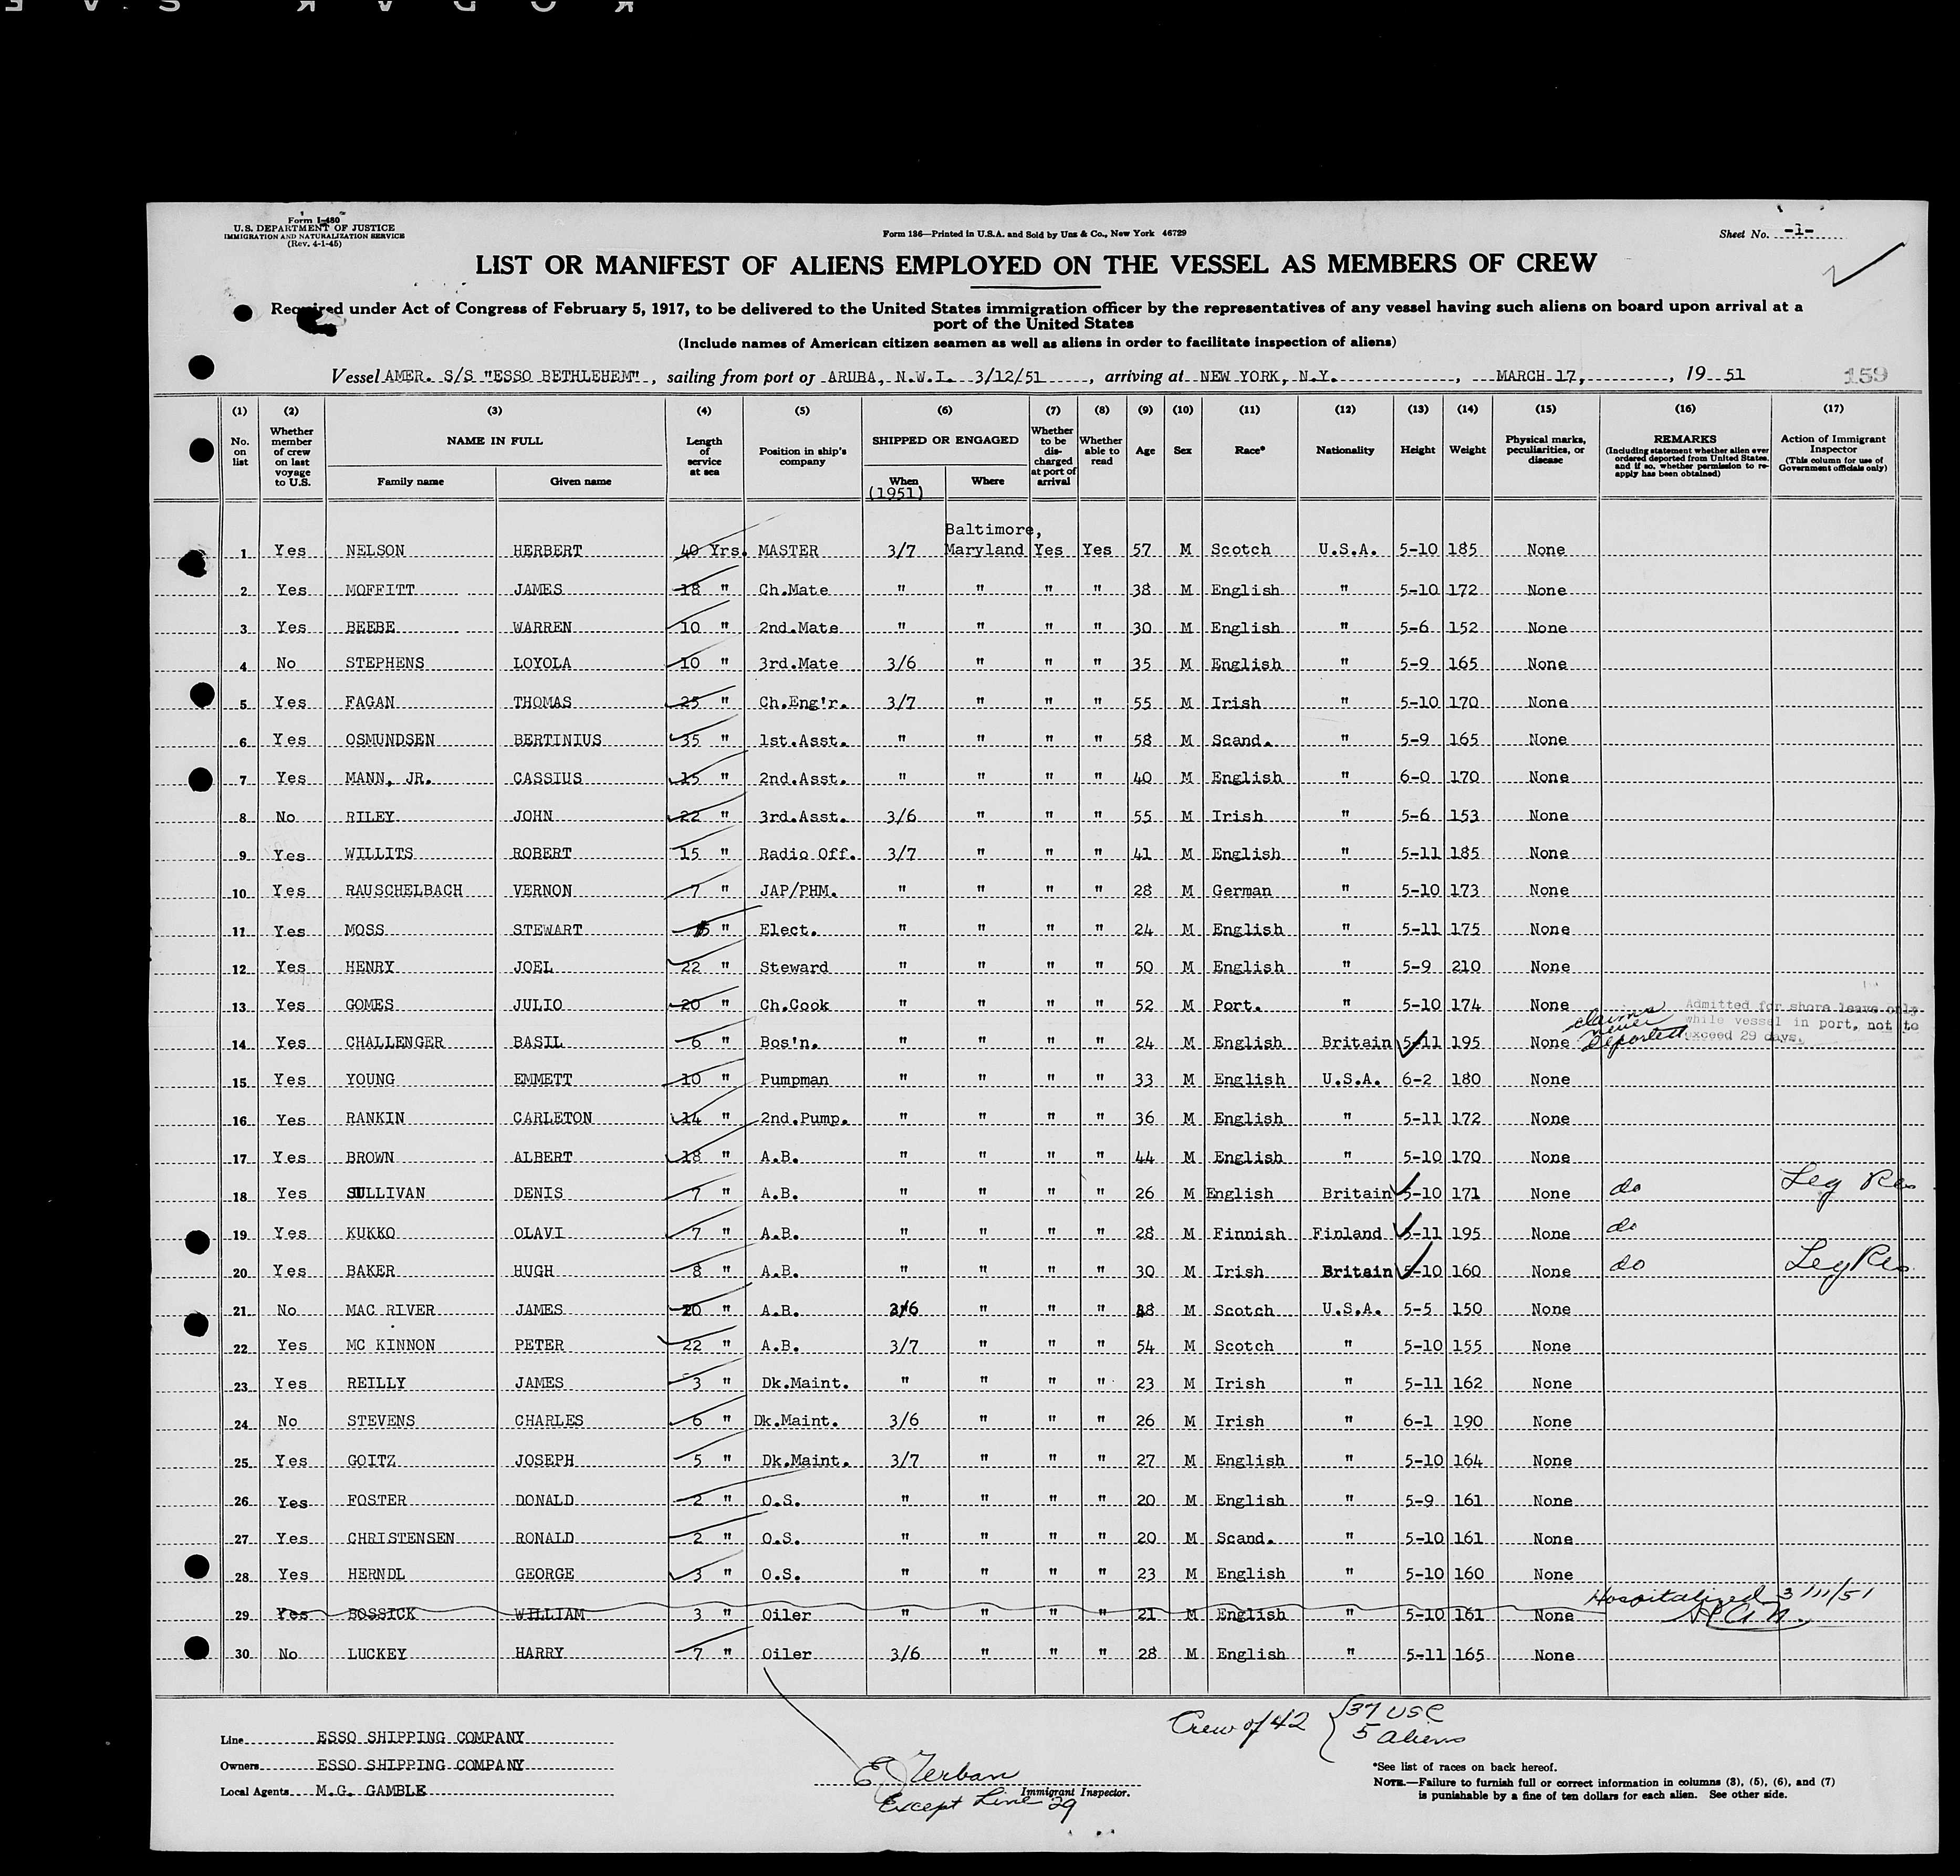 Form I-480
U.S. DEPARTMENT OF JUSTICE
IMMIGRATION AND NATURALIZATION SERVICE
(Rev. 4-1-45)
Form 186—Printed in U.S.A. and Sold by Unz & Co., New York 46729
Sheet No. -1-
LIST OR MANIFEST OF ALIENS EMPLOYED ON THE VESSEL AS MEMBERS OF CREW
Required under Act of Congress of February 5, 1917, to be delivered to the United States immigration officer by the representatives of any vessel having such aliens on board upon arrival at a
port of the United States
(Include names of American citizen seamen as well as aliens in order to facilitate inspection of aliens)
Vessel AMER. S/S "ESSO BETHLEHEM", sailing from port of ARUBA, N.W.I. 3/12/51, arriving at NEW YORK, N.Y., MARCH 17, 19 51 159
(1) (2) (3) (4) (5) (6) (7) (8) (9) (10) (11) (12) (13) (14) (15) (16) (17)
No. on list Whether member of crew on last voyage to U.S. NAME IN FULL Family name Given name Length of service at sea Position in ship's company SHIPPED OR ENGAGED When (1951) Where Whether to be discharged at port of arrival Whether able to read Age Sex Race* Nationality Height Weight Physical marks, peculiarities, or disease REMARKS (Including statement whether alien ever ordered deported from United States, and if so, whether permission to reapply has been obtained) Action of Immigrant Inspector (This column for use of Government officials only)
Baltimore,
1 Yes NELSON HERBERT 40 Yrs. MASTER 3/7 Maryland Yes Yes 57 M Scotch U.S.A. 5-10 185 None
2 Yes MOFFITT JAMES 18 " Ch.Mate " " " " 38 M English " 5-10 172 None
3 Yes BEEBE WARREN 10 " 2nd.Mate " " " " 30 M English " 5-6 152 None
4 No STEPHENS LOYOLA 10 " 3rd.Mate 3/6 " " " 35 M English " 5-9 165 None
5 Yes FAGAN THOMAS 25 " Ch.Eng'r. 3/7 " " " 55 M Irish " 5-10 170 None
6 Yes OSMUNDSEN BERTINIUS 35 " 1st.Asst. " " " " 58 M Scand. " 5-9 165 None
7 Yes MANN, JR. CASSIUS 15 " 2nd.Asst. " " " " 40 M English " 6-0 170 None
8 No RILEY JOHN 22 " 3rd.Asst. 3/6 " " " 55 M Irish " 5-6 153 None
9 Yes WILLITS ROBERT 15 " Radio Off. 3/7 " " " 41 M English " 5-11 185 None
10 Yes RAUSCHELBACH VERNON 7 " JAP/PHM. " " " " 28 M German " 5-10 173 None
11 Yes MOSS STEWART 5 " Elect. " " " " 24 M English " 5-11 175 None
12 Yes HENRY JOEL 22 " Steward " " " " 50 M English " 5-9 210 None
13 Yes GOMES JULIO 20 " Ch.Cook " " " " 52 M Port. " 5-10 174 None
claims never deported Admitted for shore leave only while vessel in port, not to exceed 29 days.
14 Yes CHALLENGER BASIL 6 " Bos'n. " " " " 24 M English Britain 5-11 195 None
15 Yes YOUNG EMMETT 10 " Pumpman " " " " 33 M English U.S.A. 6-2 180 None
16 Yes RANKIN CARLETON 14 " 2nd.Pump. " " " " 36 M English " 5-11 172 None
17 Yes BROWN ALBERT 18 " A.B. " " " " 44 M English " 5-10 170 None
18 Yes SULLIVAN DENIS 7 " A.B. " " " " 26 M English Britain 5-10 171 None do Leg Res
19 Yes KUKKO OLAVI 7 " A.B. " " " " 28 M Finnish Finland 5-11 195 None do
20 Yes BAKER HUGH 8 " A.B. " " " " 30 M Irish Britain 5-10 160 None do Leg Res
21 No MAC RIVER JAMES 20 " A.B. 3/6 " " " 38 M Scotch U.S.A. 5-5 150 None
22 Yes MC KINNON PETER 22 " A.B. 3/7 " " " 54 M Scotch " 5-10 155 None
23 Yes REILLY JAMES 3 " Dk.Maint. " " " " 23 M Irish " 5-11 162 None
24 No STEVENS CHARLES 6 " Dk.Maint. 3/6 " " " 26 M Irish " 6-1 190 None
25 Yes GOITZ JOSEPH 5 " Dk.Maint. 3/7 " " " 27 M English " 5-10 164 None
26 Yes FOSTER DONALD 2 " O.S. " " " " 20 M English " 5-9 161 None
27 Yes CHRISTENSEN RONALD 2 " O.S. " " " " 20 M Scand. " 5-10 161 None
28 Yes HERNDL GEORGE 3 " O.S. " " " " 23 M English " 5-10 160 None
29 Yes BOSSICK WILLIAM 3 " Oiler " " " " 21 M English " 5-10 161 None Hospitalized 3/11/51
30 No LUCKEY HARRY 7 " Oiler 3/6 " " " 28 M English " 5-11 165 None
Crew of 42 { 37 USC
5 aliens
Line ESSO SHIPPING COMPANY
Owners ESSO SHIPPING COMPANY
Local Agents M.G. GAMBLE
E Terban
Immigrant Inspector.
Except Line 29
*See list of races on back hereof.
NOTE.—Failure to furnish full or correct information in columns (3), (5), (6), and (7)
is punishable by a fine of ten dollars for each alien. See other side.